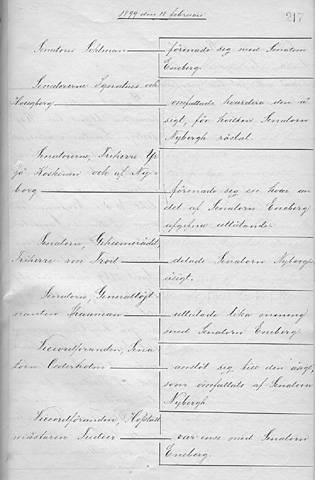 1899 den 18 februari
217
Senatorn Sohlman — förenade sig med Senatorn
Eneberg.
Senatorerne Ignatius och
Hougberg — omfattade hvardera den å
sigt, för hvilken Senatorn
Nybergh röstat.
Senatorerne, Friherre Yr
jö Koskinen och af Ny
borg — förenade sig om hvar an
det af Senatorn Eneberg
afgifna utlåtande.
Senatorn, Geheimerådet
Friherre von Troil — delade Senatorn Nyberghs
åsigt.
Senatorn, Generallöjt
nanten Strauman — uttalade lika mening
med Senatorn Eneberg.
Viceordföranden, Sena
torn Cederholm — anslöt sig till den åsigt,
som omfattats af Senatorn
Nybergh
Viceordföranden, Hofstall
mästaren Tudeer — var ense med Senatorn
Eneberg.